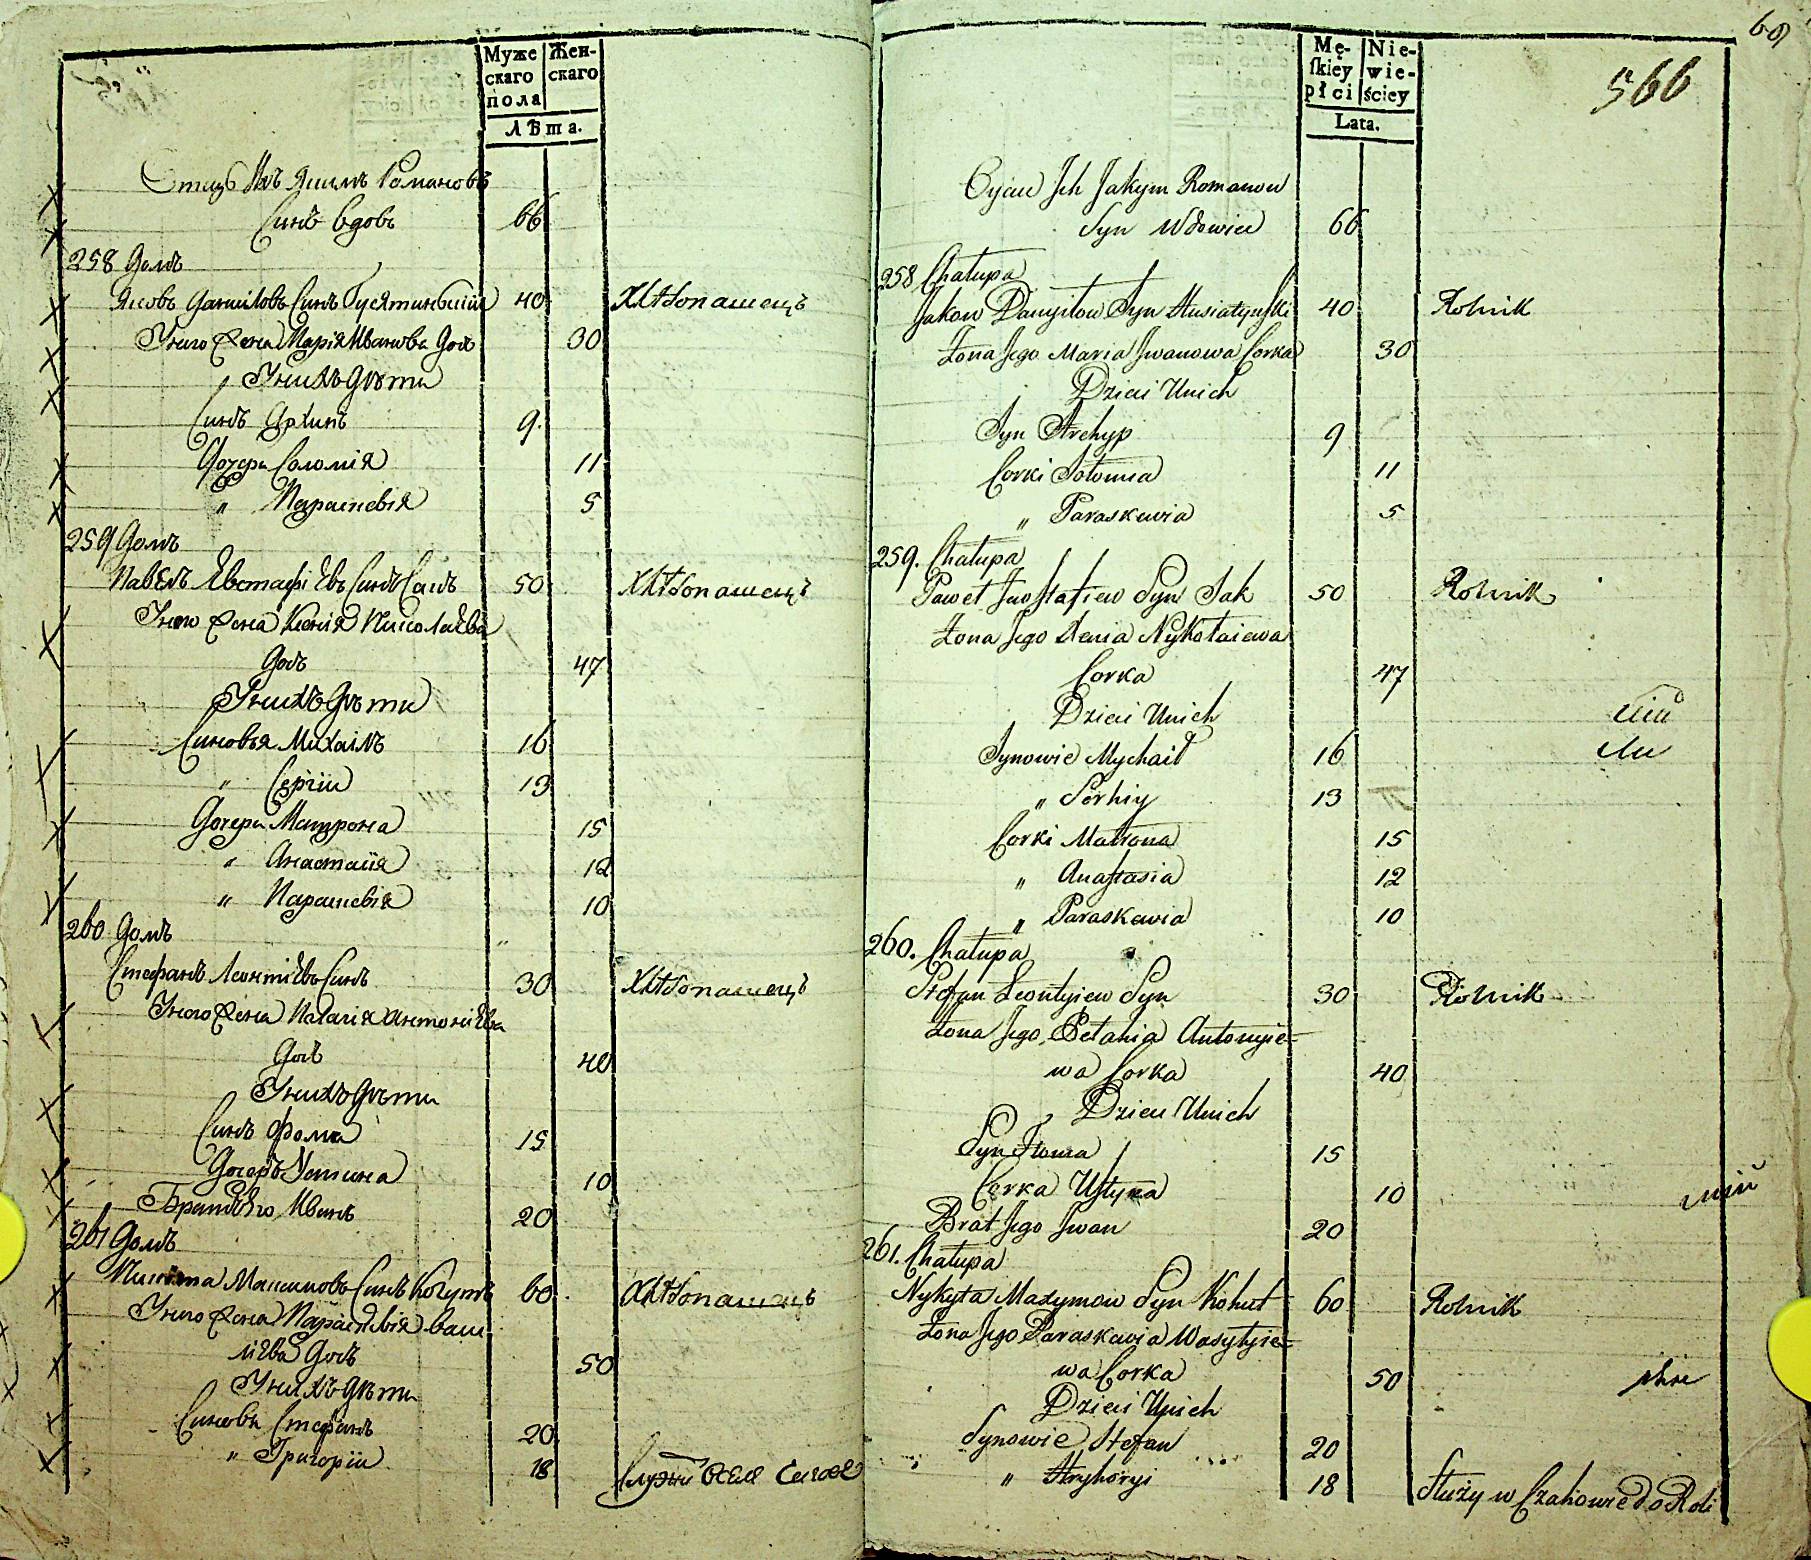 Муже Жен-
скаго скаго
пола
Лѣта.
Отецъ Ихъ Якимъ Романовъ
Синъ Вдовъ 66
258 Домъ
Яковъ Даниловъ Синъ Гусятинскій 40 Хлѣбопашецъ
У него Жена Марія Иванова Дочь 30
У них Дѣти
Синъ Архипъ 9.
Дочери Соломія 11
" Параскевія 5
259 Домъ
Павелъ Евстафіевъ Синъ Сакъ 50 Хлѣбопашецъ
У него Жена Ксенія Николаева
Дочь 47
У нихъ Дѣти
Синовья Михаілъ 16
" Сергіи 13
Дочери Матрона 15
" Анастасія 12
" Параскевія 10
260 Домъ
Стефанъ Леонтіевъ Синъ 30 Хлѣбопашецъ
У него Жена Палагія Антоніева
Дочь 40
У нихъ Дѣти
Синъ Фома 15
Дочерь Устина 10
Братъ Его Иванъ 20
261 Домъ
Никита Максимовъ Синъ Когутъ 60 Хлѣбопашецъ
У него Жена Параскевія Васи
ліева Дочь 50
У нихъ Дѣти
Синовья Стефанъ 20
" Григоріи 18
69
566
Mę- Nie-
skiey wie-
płci ściey
Lata.
Oyciec Ich Jakym Romanow
Syn Wdowiec 66
258 Chałupa
Jakow Danyiłow Syn Husiatyński 40 Rolnik
Żona Jego Maria Iwanowa Corka 30
Dzieci Unich
Syn Archyp 9
Corki Sołomia 11
" Paraskewia 5
259. Chałupa
Paweł Jewstafiew Syn Sak 50 Rolnik
Żona Jego Xenia Nykołaiewa
Corka 47
Dzieci Unich
Synowie Mychaił 16
" Serhiy 13
Corki Matrona 15
" Anastasia 12
" Paraskewia 10
260. Chałupa
Stefan Leontyiew Syn 30 Rolnik
Żona Jego Pełahia Antonyie-
wa Corka 40
Dzieci Unich
Syn Homa 15
Corka Ustyna 10
Brat Jego Iwan 20
261. Chałupa
Nykyta Maxymow Syn Kohut 60 Rolnik
Żona Jego Paraskewia Wasylyie-
wa Corka 50
Dzieci Unich
Synowie Stefan 20
" Hryhoryi 18 Służy w Czahowie do Roli